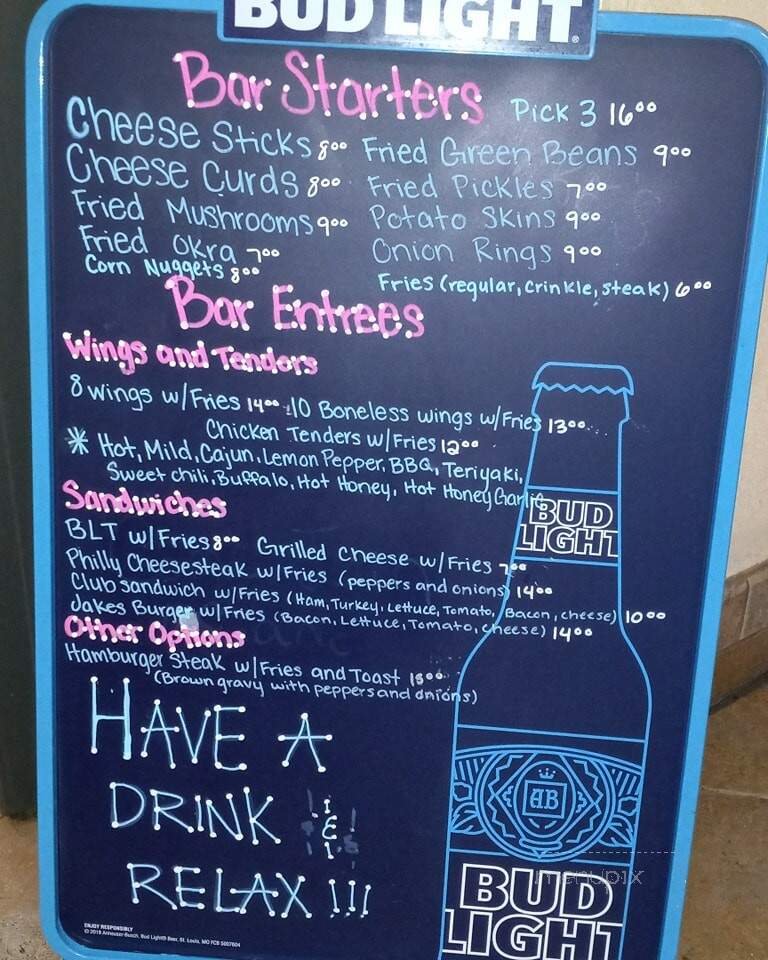 BUD LIGHT
Bar Starters Pick 3 16⁰⁰
Cheese Sticks 8⁰⁰ Fried Green Beans 9⁰⁰
Cheese Curds 8⁰⁰ Fried Pickles 7⁰⁰
Fried Mushrooms 9⁰⁰ Potato Skins 9⁰⁰
Fried Okra 7⁰⁰ Onion Rings 9⁰⁰
Corn Nuggets 8⁰⁰ Fries (regular, crinkle, steak) 6⁰⁰
Bar Entrees
Wings and Tenders
8 wings w/Fries 14⁰⁰ 10 Boneless wings w/Fries 13⁰⁰
Chicken Tenders w/Fries 12⁰⁰
* Hot, Mild, Cajun, Lemon Pepper, BBQ, Teriyaki,
Sweet chili, Buffalo, Hot Honey, Hot Honey Garlic
Sandwiches
BLT w/Fries 8⁰⁰ Grilled Cheese w/Fries 7⁰⁰
Philly Cheesesteak w/Fries (peppers and onions) 14⁰⁰
Club sandwich w/Fries (Ham, Turkey, Lettuce, Tomato, Bacon, cheese) 10⁰⁰
Jakes Burger w/Fries (Bacon, Lettuce, Tomato, cheese) 14⁰⁰
Other Options
Hamburger Steak w/Fries and Toast 15⁰⁰
(Brown gravy with peppers and onions)
HAVE A
DRINK &
RELAX !!!
BUD
LIGHT
AB
BUD
LIGHT
menupix
ENJOY RESPONSIBLY
© 2019 Anheuser-Busch, Bud Light® Beer, St. Louis, MO